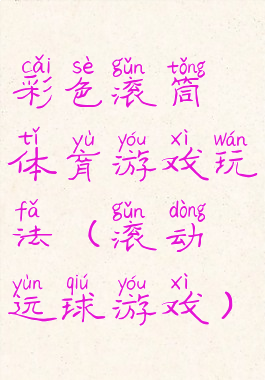 cǎi sè gǔn tǒng
彩色滚筒
tǐ yù yóu xì wán
体育游戏玩
fǎ gǔn dòng
法（滚动
yùn qiú yóu xì
运球游戏）